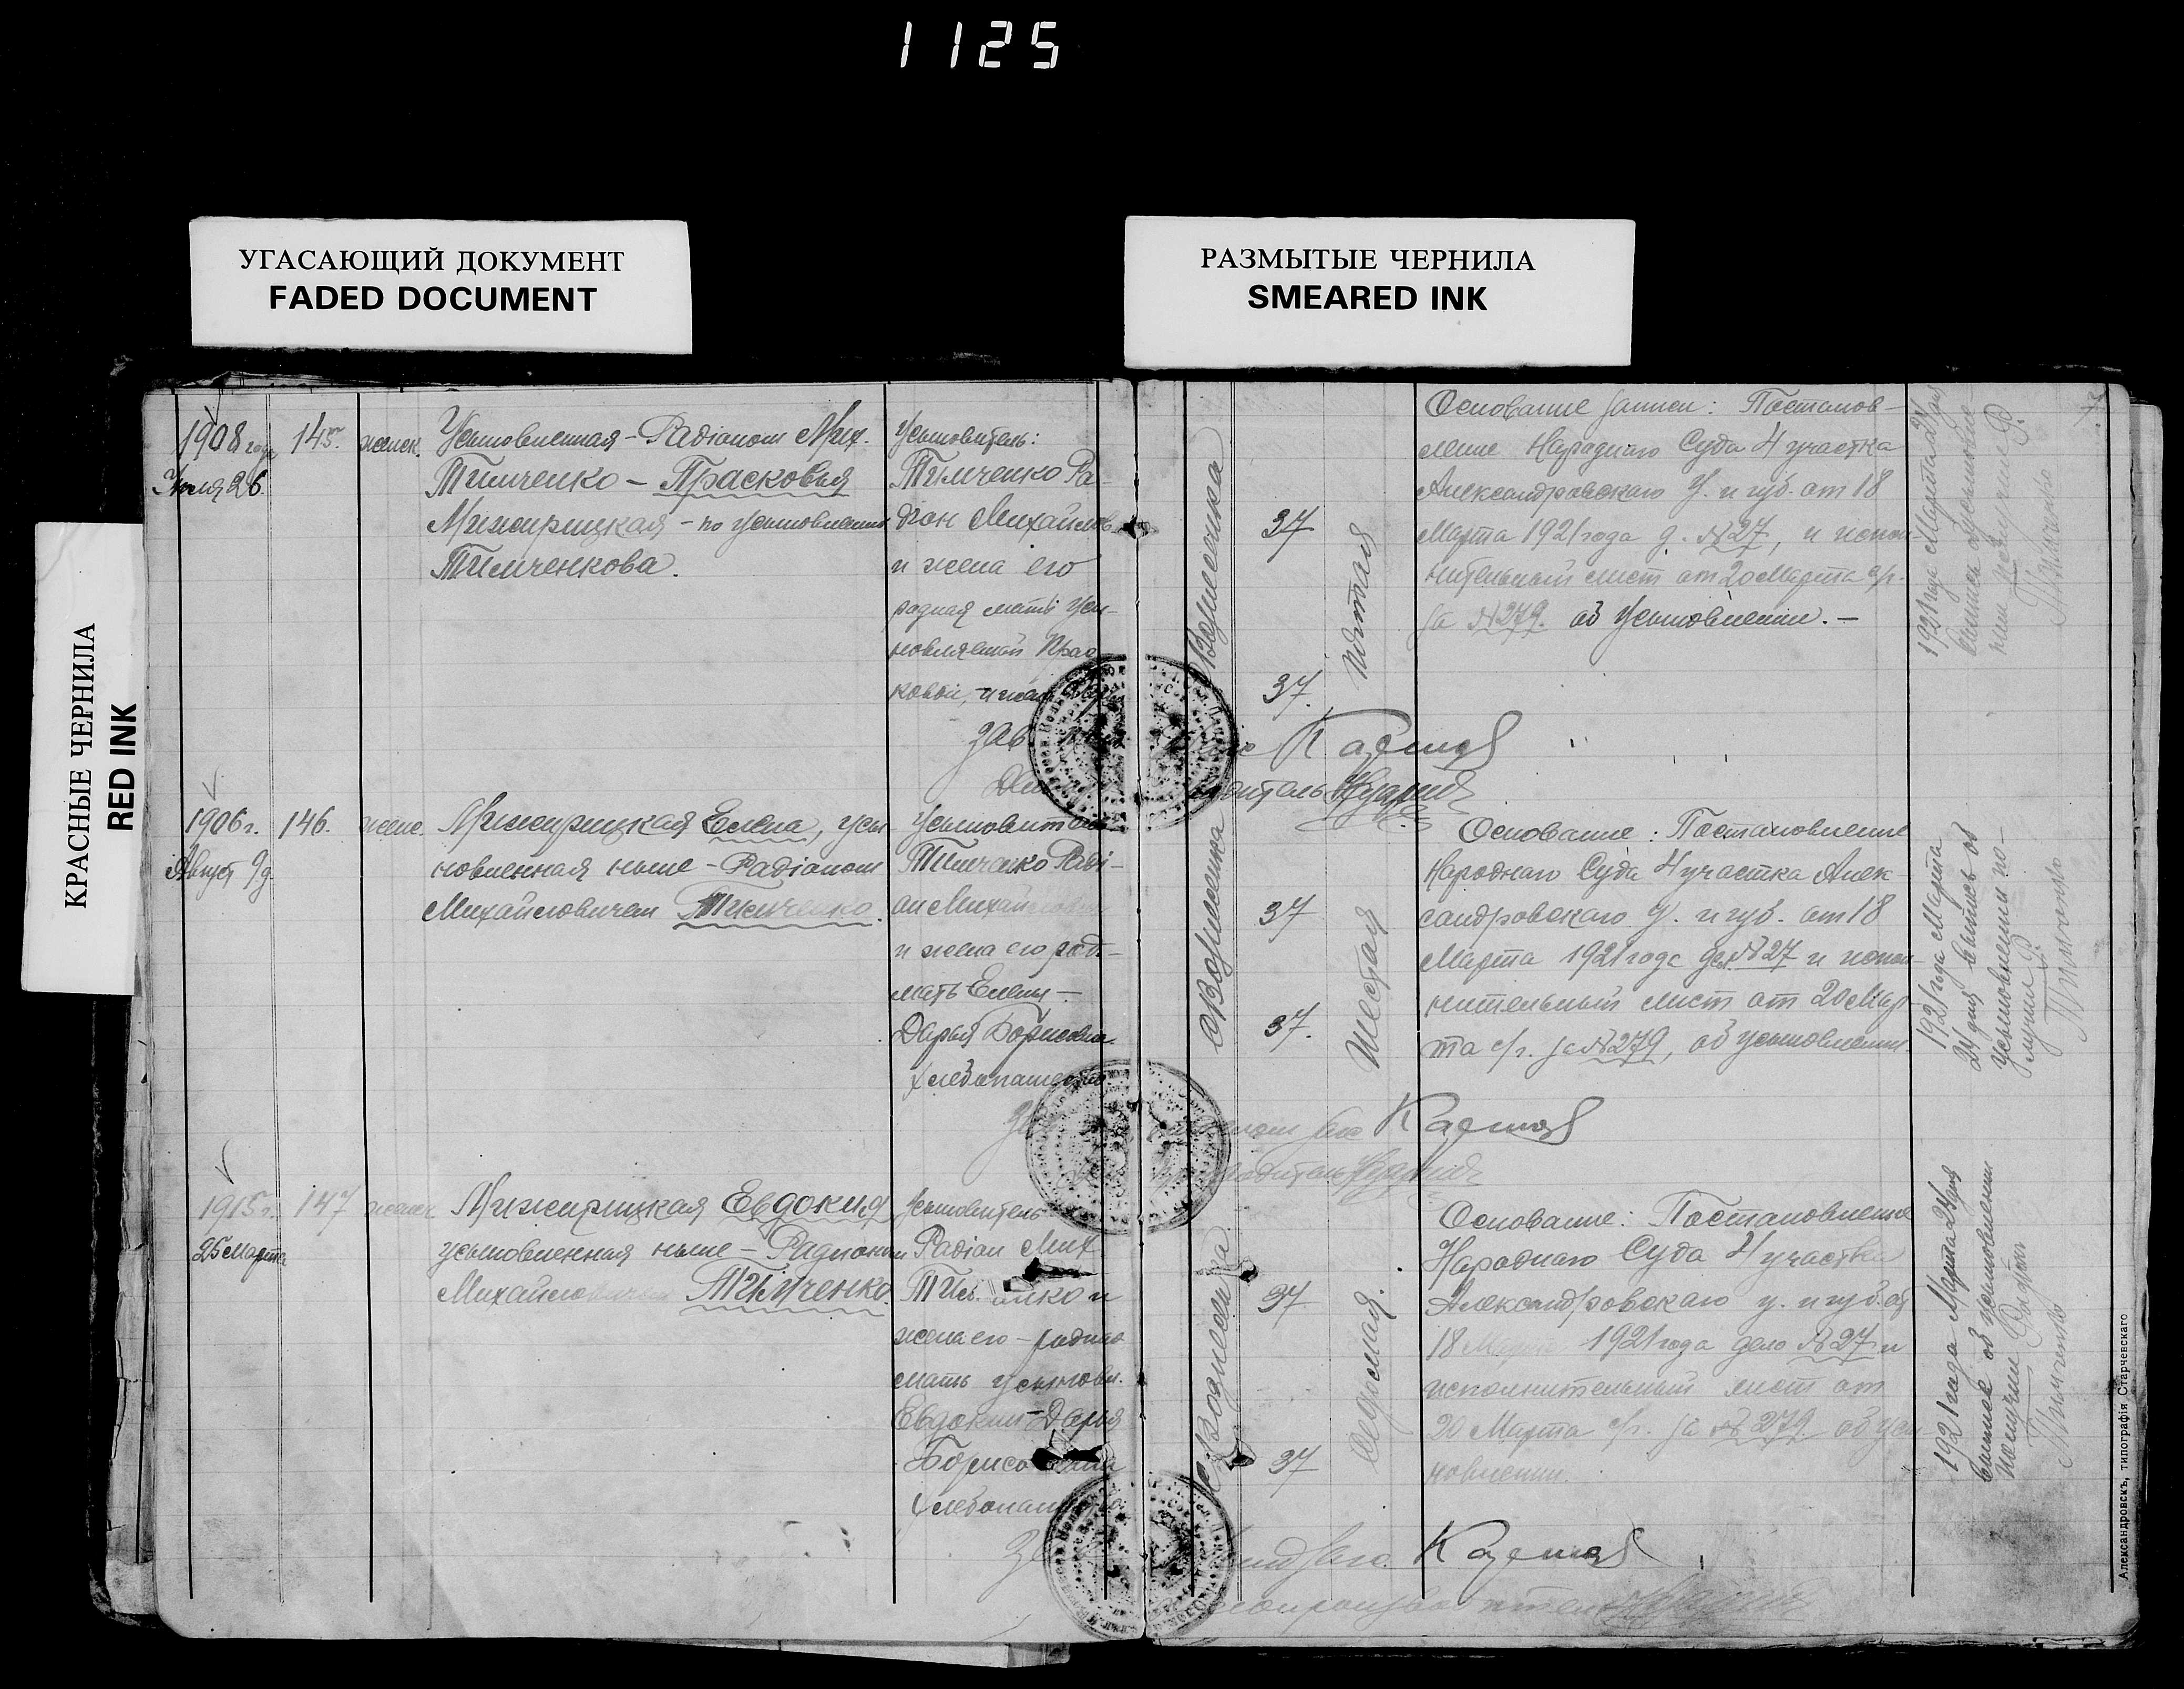 1125
УГАСАЮЩИЙ ДОКУМЕНТ
FADED DOCUMENT
РАЗМЫТЫЕ ЧЕРНИЛА
SMEARED INK
КРАСНЫЕ ЧЕРНИЛА
RED INK
1908 года
26
145.
женск.
Усыновленная – Радіаном Мих.
Тимченко – Прасковья
Мижирицкая – по усыновлению
Тимченкова.
Усыновитель:
Тимченко Ра-
дион Михайлов
и жена его
родная мать усы-
новляемой Прас
ковьи,
Зав
Вознесенка
37
37.
Пятая
Основание записи: Постанов-
ление Народнаго Суда 4 участка
Александровскаго У. и губ. от 18
Марта 1921 года д. №27, и испол-
нительный лист от 20 Марта с/г.
за №279. об усыновлении. –
1921 года Марта 24 дня
выпись об усыновлении
Тимченко
1906 г.
Август 9 д.
146.
женс.
Мижирицкая Елена, усы
новленная ныне – Радіаном
Михайловичем Тимченко.
Усыновитель
Тимченко Раді-
ан Михайлович
и жена его род.
мать Елены –
Дарья Борисовна
хлебопашество
с. Вознесенка
37
37.
Шестая
Основание: Постановление
Народнаго Суда 4 участка Алек
сандровскаго у. и губ. от 18
Марта 1921 года дел №27 и испол-
нительный лист от 20 Мар
та с/г. за №279, об усыновлении.
1921 года Марта
24 дня выпись об
усыновлении по-
лучил Р.
Тимченко
1915 г.
25 Марта
147
женск
Мижирицкая Евдокия
усыновленная ныне – Радионом
Михайловичем Тимченко.
Усыновитель
Радіан Мих
Тим нко и
жена его – родная
мать усыновл.
Евдокии – Дарья
Борисовна
хлебопашество
с. Вознесенка.
37
37
Седьмая.
Основание: Постановление
Народнаго Суда 4 участка
Александровскаго у. и губ. от
18 Марта 1921 года дело №27 и
исполнительный лист от
20 Марта с/г. за №279 об усы
новлении.
1921 года Марта 24 дня
выпись об усыновлении
получил
Тимченко
Александровскъ, типографія Старчевскаго